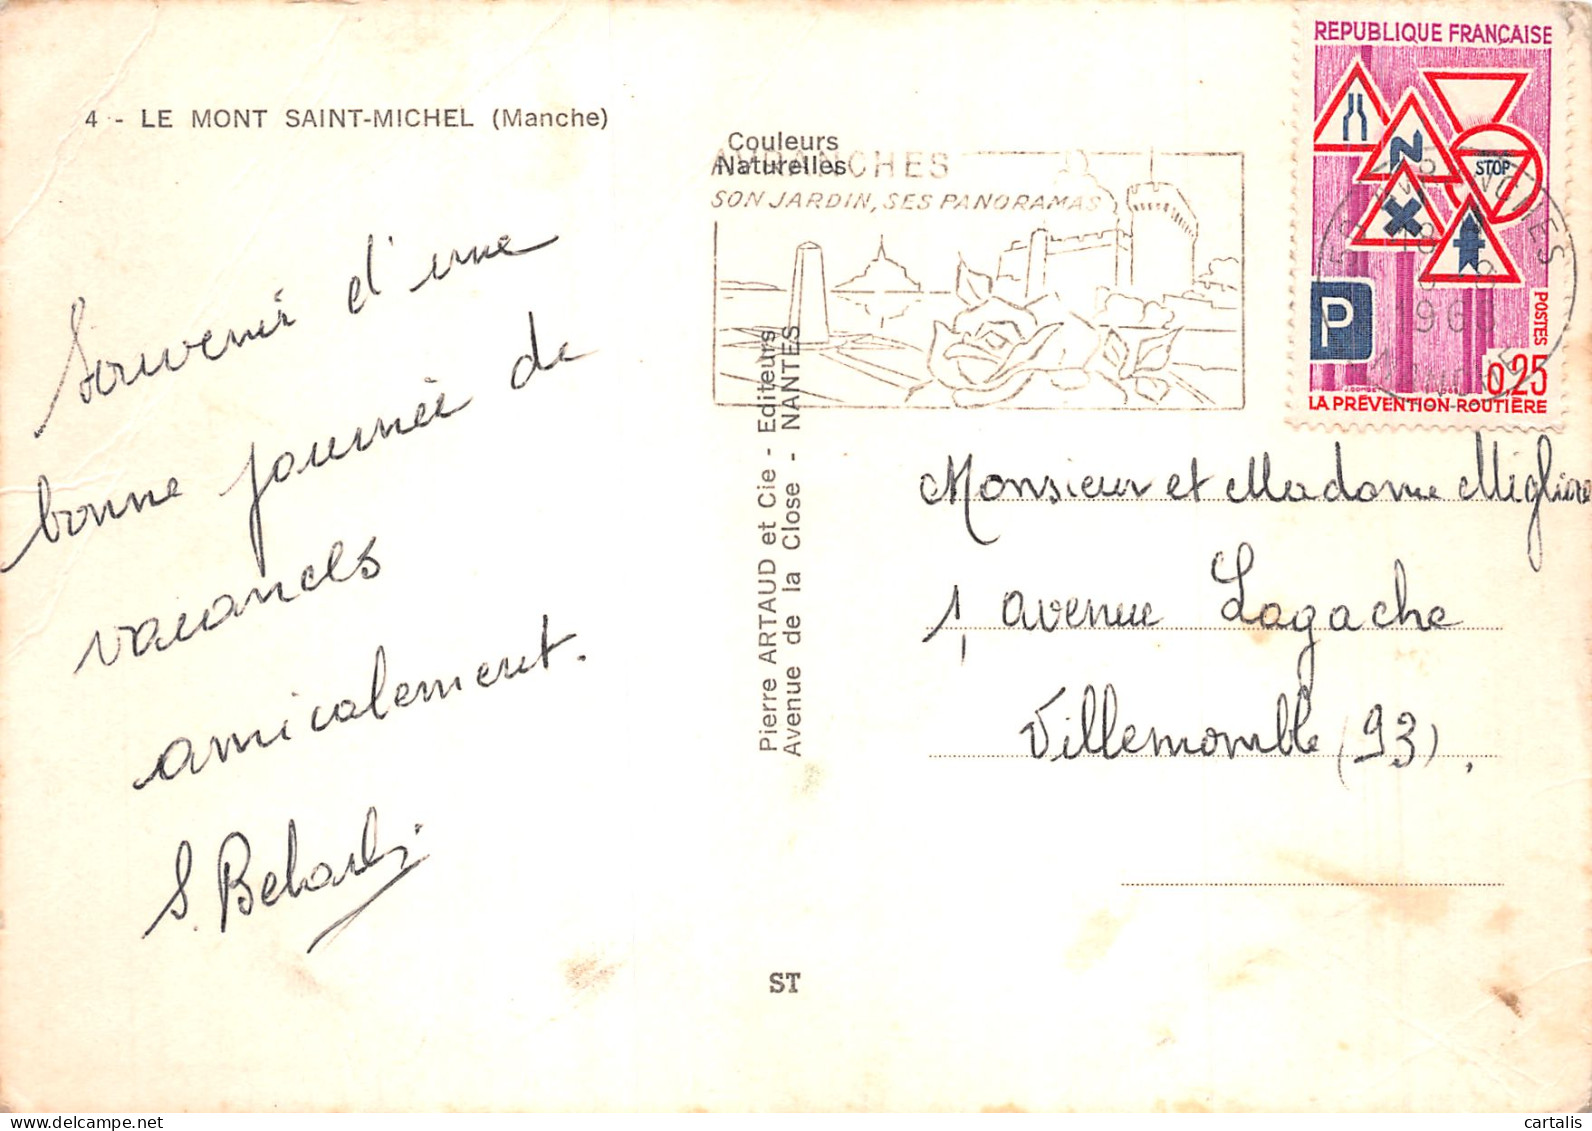 4 - LE MONT SAINT-MICHEL (Manche)
Souvenir d'une
bonne journée de
vacances
amicalement.
Couleurs
Naturelles
AVRANCHES
SON JARDIN, SES PANORAMAS
Pierre ARTAUD et Cie - Editeurs
Avenue de la Close - NANTES
ST
REPUBLIQUE FRANÇAISE
STOP
P
POSTES
0,25
LA PRÉVENTION ROUTIÈRE
AVRANCHES
MANCHE
Monsieur et Madame
1, avenue Lagache
Villemomble (93).
cartalis